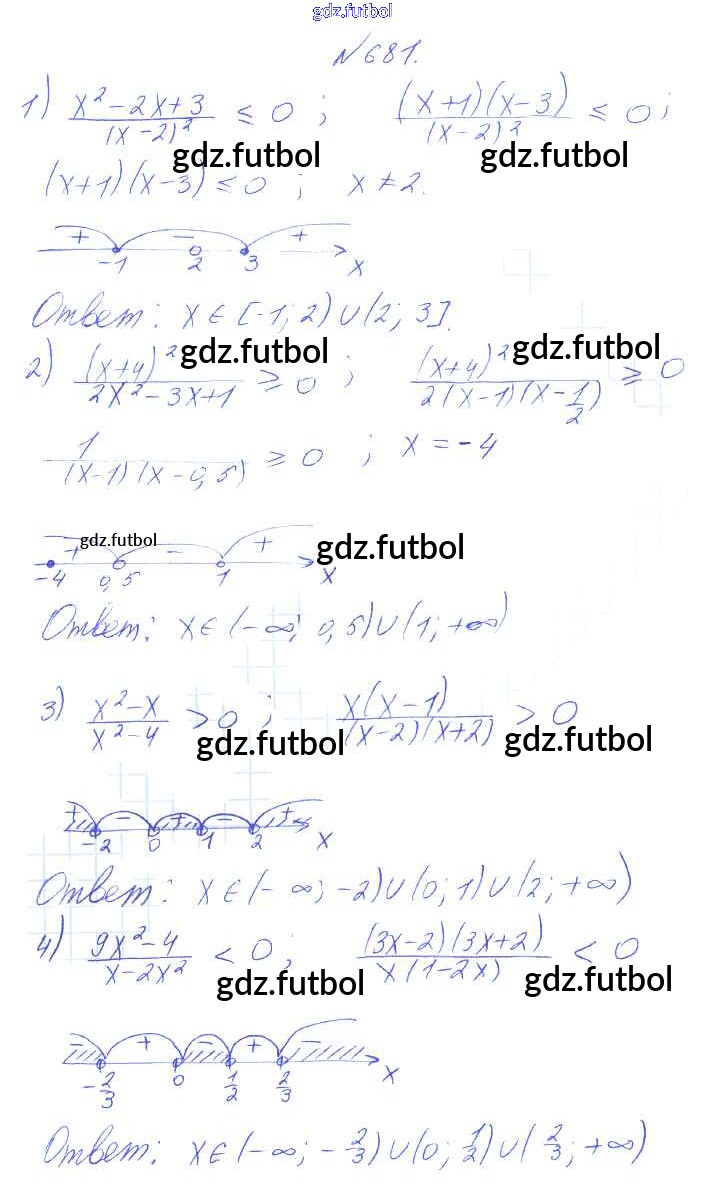 gdz.futbol
№681.
1) (x²-2x+3)/(x-2)² ≤ 0 ; (x+1)(x-3)/(x-2)² ≤ 0 ;
gdz.futbol gdz.futbol
(x+1)(x-3) ≤ 0 ; x ≠ 2.
+ - +
-1 2 3 x
Ответ: x ∈ [-1; 2) ∪ (2; 3].
gdz.futbol gdz.futbol
2) (x+4)²/(2x²-3x+1) ≥ 0 ; (x+4)²/(2(x-1)(x-1/2)) ≥ 0
1/((x-1)(x-0,5)) ≥ 0 ; x = -4
+ gdz.futbol - + gdz.futbol
-4 0,5 1 x
Ответ: x ∈ (-∞; 0,5) ∪ (1; +∞)
3) (x²-x)/(x²-4) > 0 ; x(x-1)/((x-2)(x+2)) > 0
gdz.futbol gdz.futbol
+ - + - +
-2 0 1 2 x
Ответ: x ∈ (-∞; -2) ∪ (0; 1) ∪ (2; +∞)
4) (9x²-4)/(x-2x²) < 0 ; (3x-2)(3x+2)/(x(1-2x)) < 0
gdz.futbol gdz.futbol
- + - + -
-2/3 0 1/2 2/3 x
Ответ: x ∈ (-∞; -2/3) ∪ (0; 1/2) ∪ (2/3; +∞)